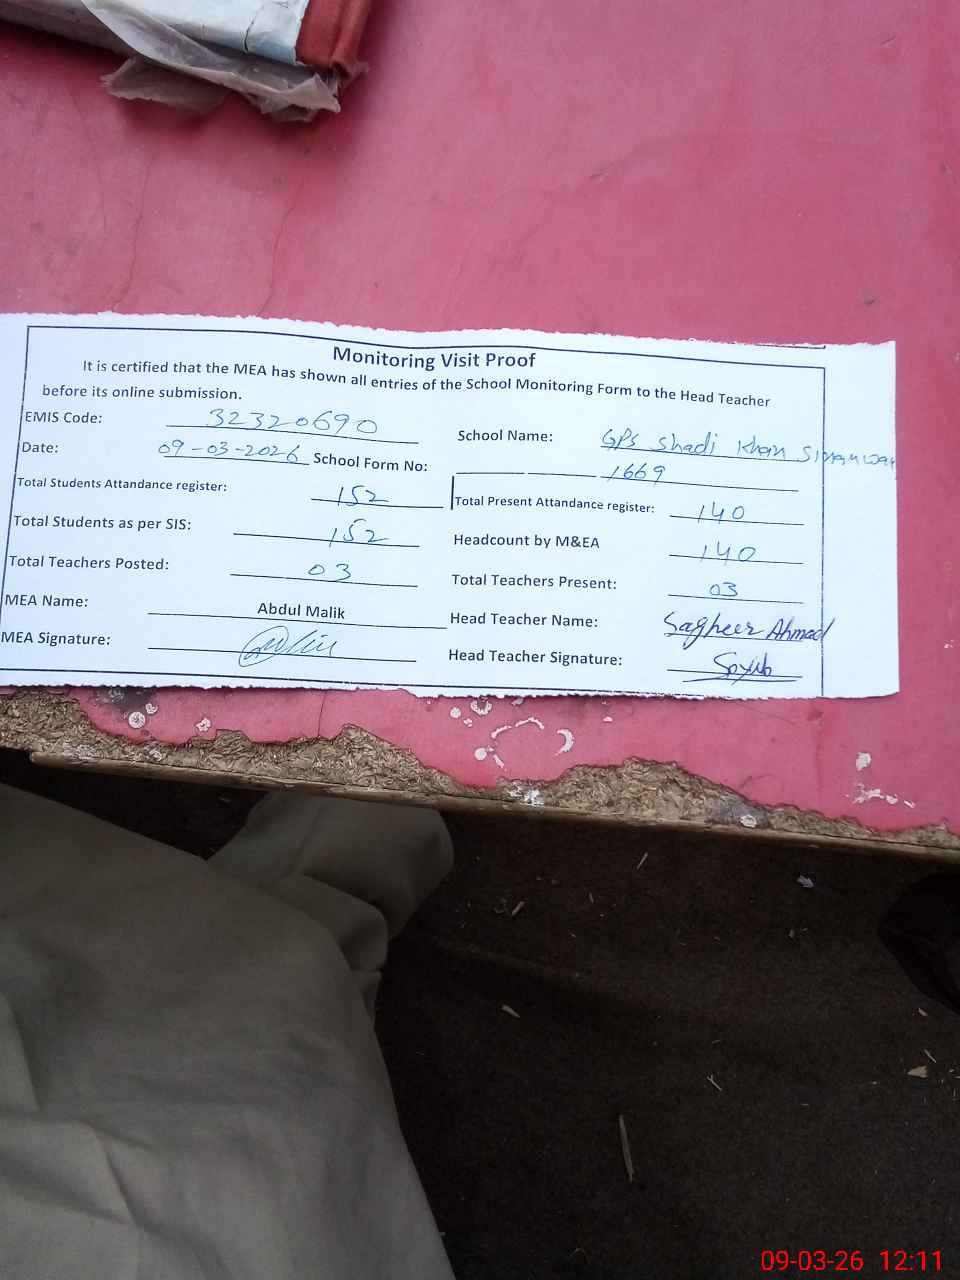 Monitoring Visit Proof
It is certified that the MEA has shown all entries of the School Monitoring Form to the Head Teacher
before its online submission.
EMIS Code: 32320690 School Name: GPS Shadi Khan
Date: 09-03-2026 School Form No: 1669
Total Students Attandance register: 152 Total Present Attandance register: 140
Total Students as per SIS: 152 Headcount by M&EA 140
Total Teachers Posted: 03 Total Teachers Present: 03
MEA Name: Abdul Malik Head Teacher Name: Sagheer Ahmad
MEA Signature: Head Teacher Signature:
09-03-26 12:11